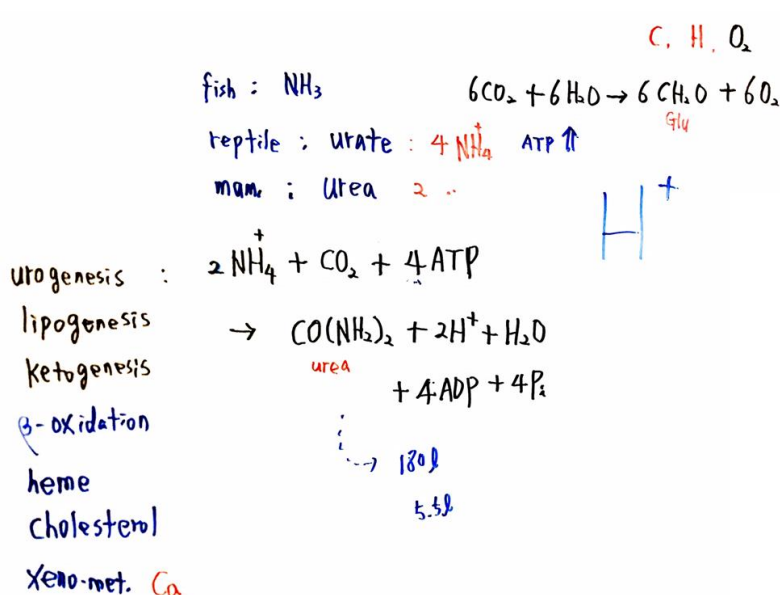 C. H. O₂
fish : NH₃
6CO₂ + 6H₂O → 6CH₂O + 6O₂
Glu
reptile : urate : 4 NH₄⁺ ATP ⇑
mam. : Urea 2 ..
H⁺
urogenesis : 2NH₄⁺ + CO₂ + 4ATP
lipogenesis
→ CO(NH₂)₂ + 2H⁺ + H₂O
urea
ketogenesis
+ 4ADP + 4Pi
β-oxidation
⇢ 180l
5.5l
heme
cholesterol
xeno-met. Ca